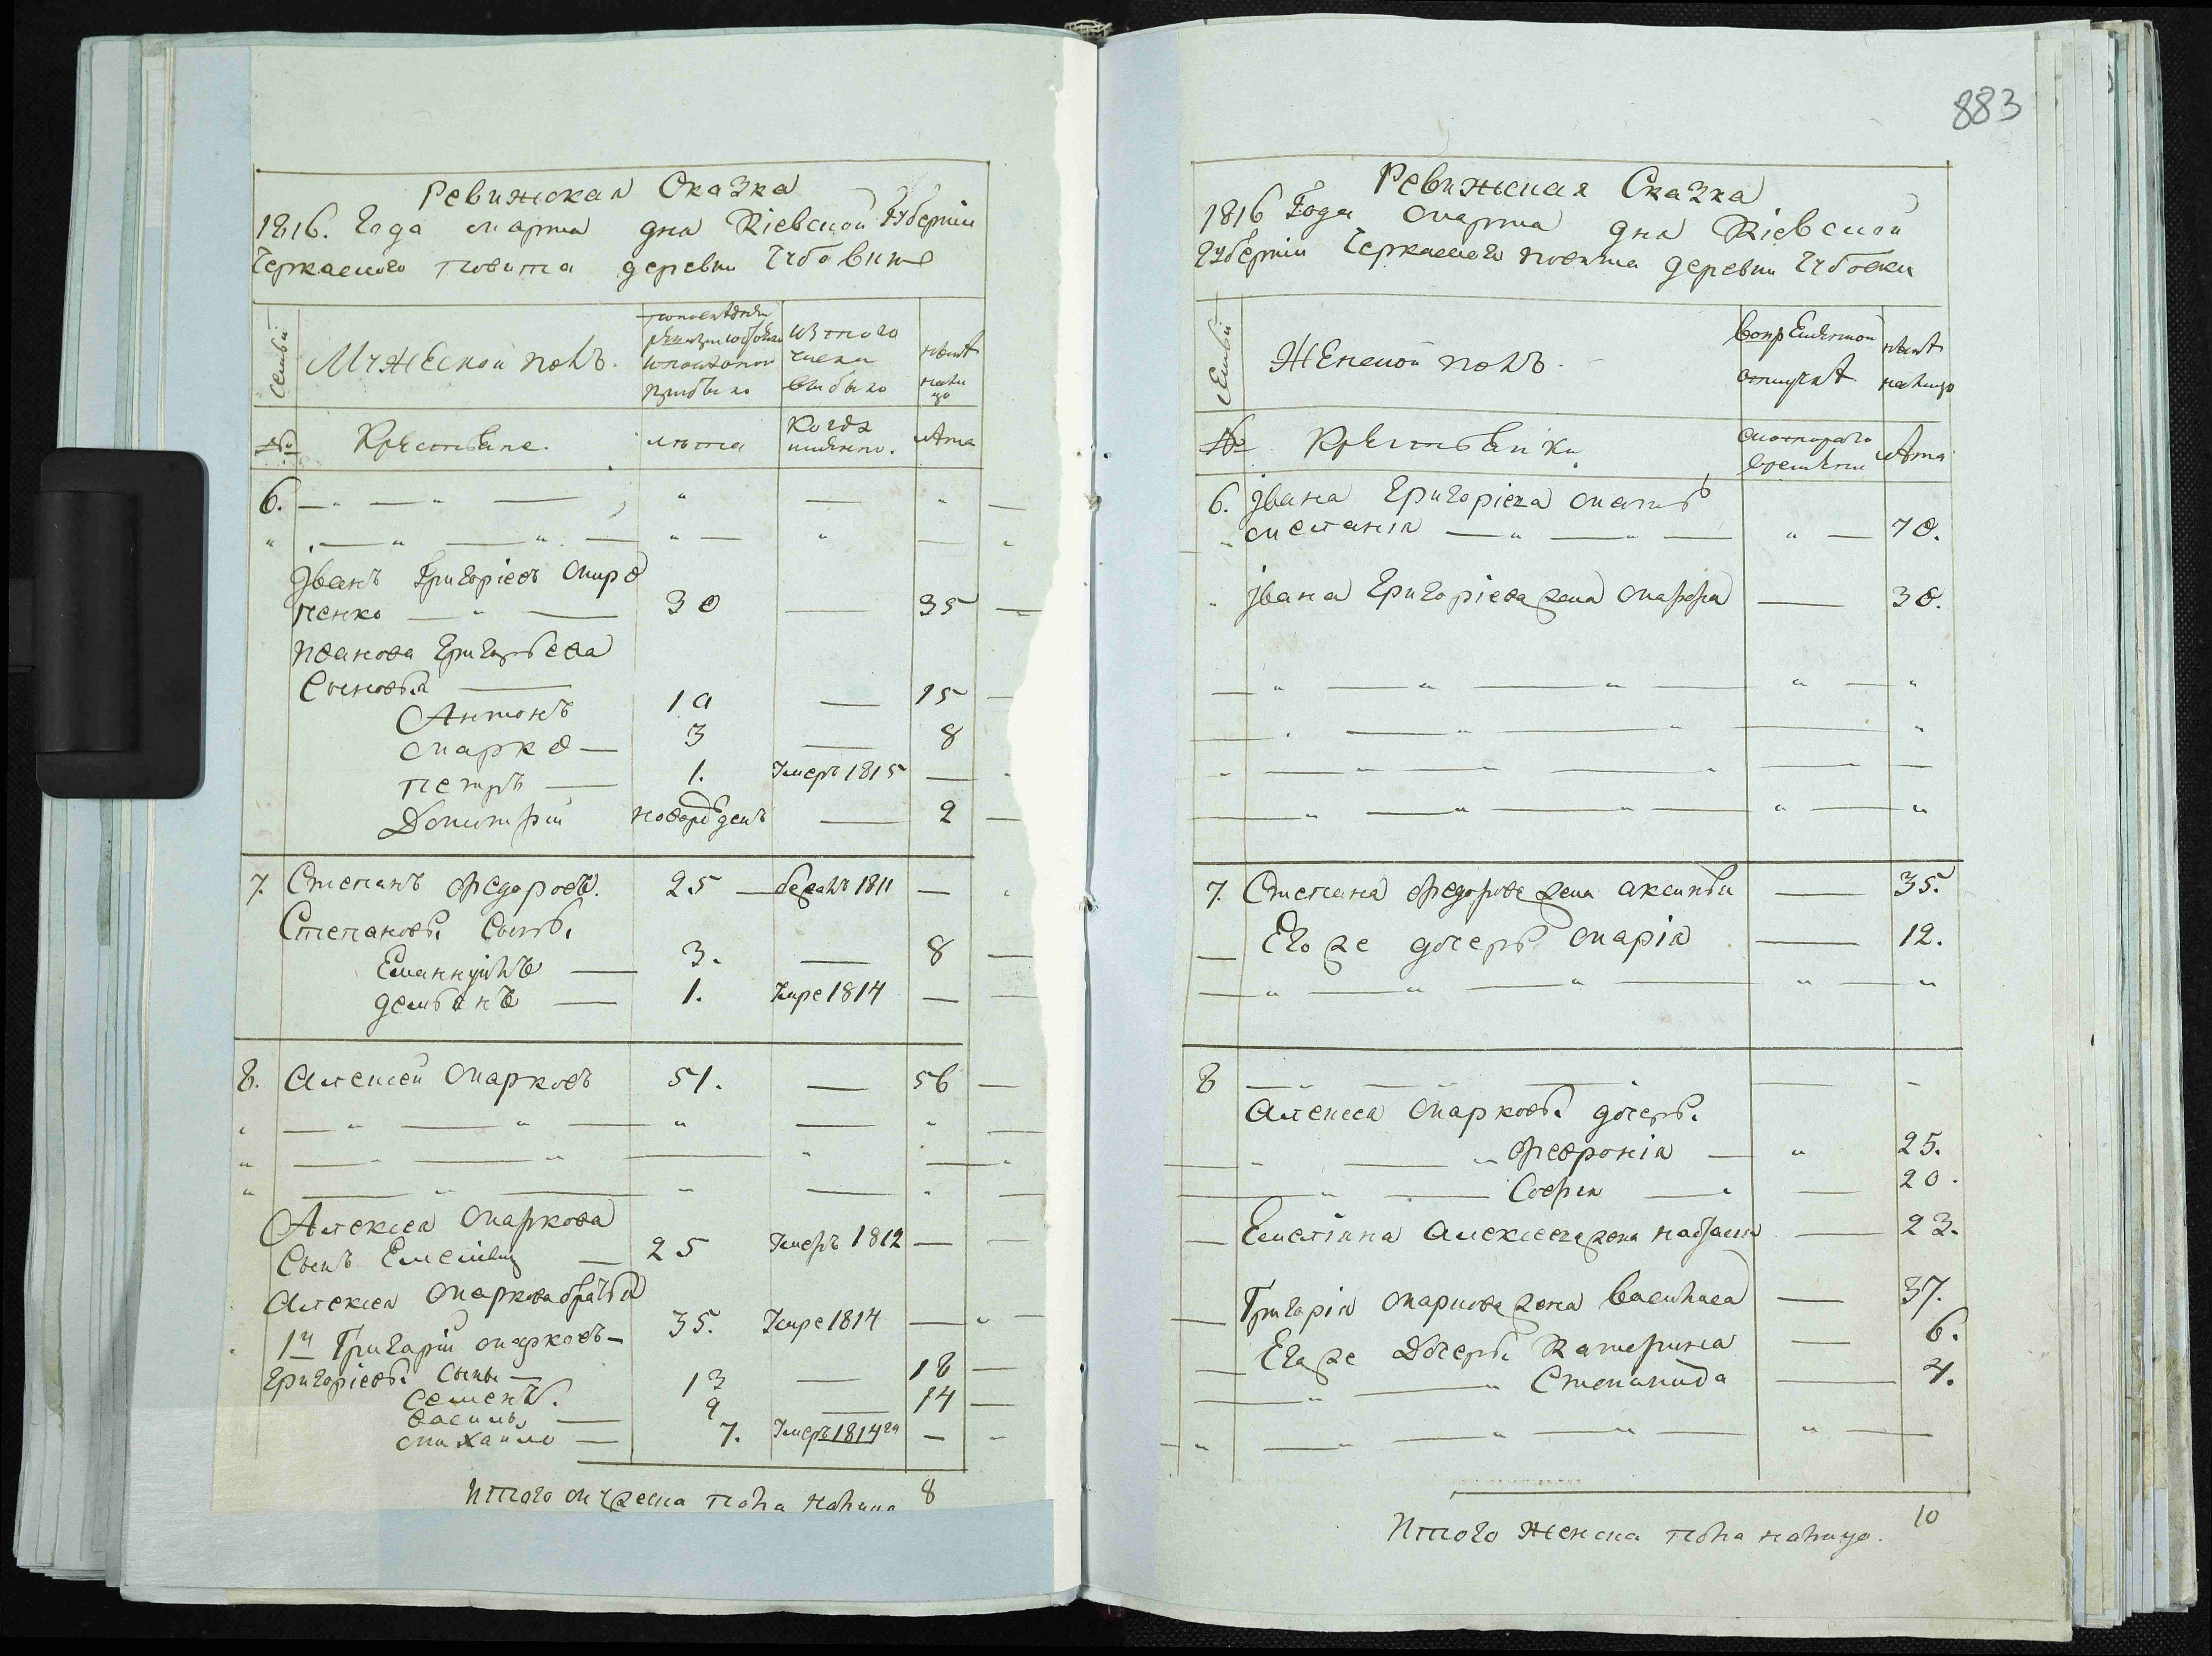 883
Ревижская Сказка
1816. Года марта дня Кіевской Губерніи
Черкаского повита деревни Губовки
Семьи
Мужеской полъ.
по последней ревизіи состояло и после оной прибыло
Изъ того числа выбыло
ныне на лицо
№
Крестьяне.
лета
Когда имянно.
лета
6.
Іванъ Григоріевъ Миро
ненко 30 35
Иванова Григорьева
Сыновья
Антонъ 10 15
Марко 3 8
Петръ 1. Умеръ 1815
Дмитрій новорожденъ 2
7. Степанъ Федоровъ. 25 бежалъ 1811
Степановы Сыны
Емануйлъ 3. 8
Демьянъ 1. Умре 1814
8. Алексей Марковъ 51. 56
Алексея Маркова
Сынъ Емеліянъ 25 Умеръ 1812
Алексея Маркова братья
1й Григорій Марковъ 35. Умре 1814
Григоріевы Сыны
Семенъ. 13 18
Василь 9 14
Михайло 7. Умеръ 1814го
Итого мужеска пола налицо 8
Ревижская Сказка
1816 Года марта дня Кіевской
Губерніи Черкаского повита деревни Губовки
Семьи
Женской полъ.
Во временной отлучке
ныне на лицо
№
Крестьянки
Съ которого времени
лета
6. Івана Григоріева мать
Меланія 70.
Івана Григоріева жена Марфа 38.
7. Степана Федорова жена Аксинья 35.
Его же дочерь Марія 12.
8
Алексея Марковы дочеры
Февронія 25.
Софія 20.
Емеліяна Алексеева жена 23.
Григорія Маркова жена Василиса 37.
Его же Дочеры Катерина 6.
Степанида 4.
Итого женска пола налицо. 10